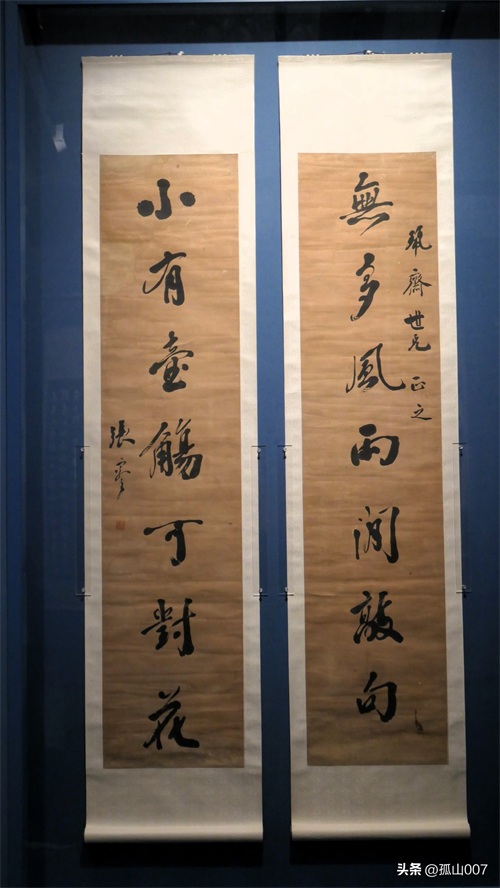 瓶齋世兄正之
無多風雨閒敲句
小有壺觴可對花
張謇
头条 @孤山007